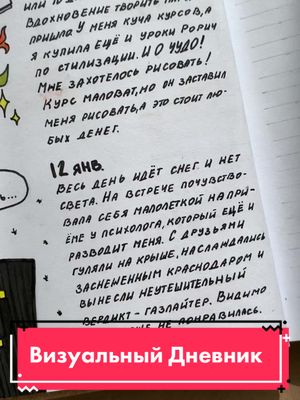 или
Вдохновение творить
пришла У меня куча курсов, а
я купила ещё и уроки Рорич
по стилизации. И О ЧУДО!
Мне захотелось рисовать!
Курс маловат, но он заставил
меня рисовать, а это стоит лю-
бых денег.
12 янв.
Весь день идёт снег и нет
света. На встрече почувство-
вала себя малолеткой на при-
ёме у психолога, который ещё и
разводит меня. С друзьями
гуляли на крыше, наслаждались
заснеженным Краснодаром и
вынесли неутешительный
вердикт - газлайтер. Видимо
не понравилась.
Визуальный Дневник